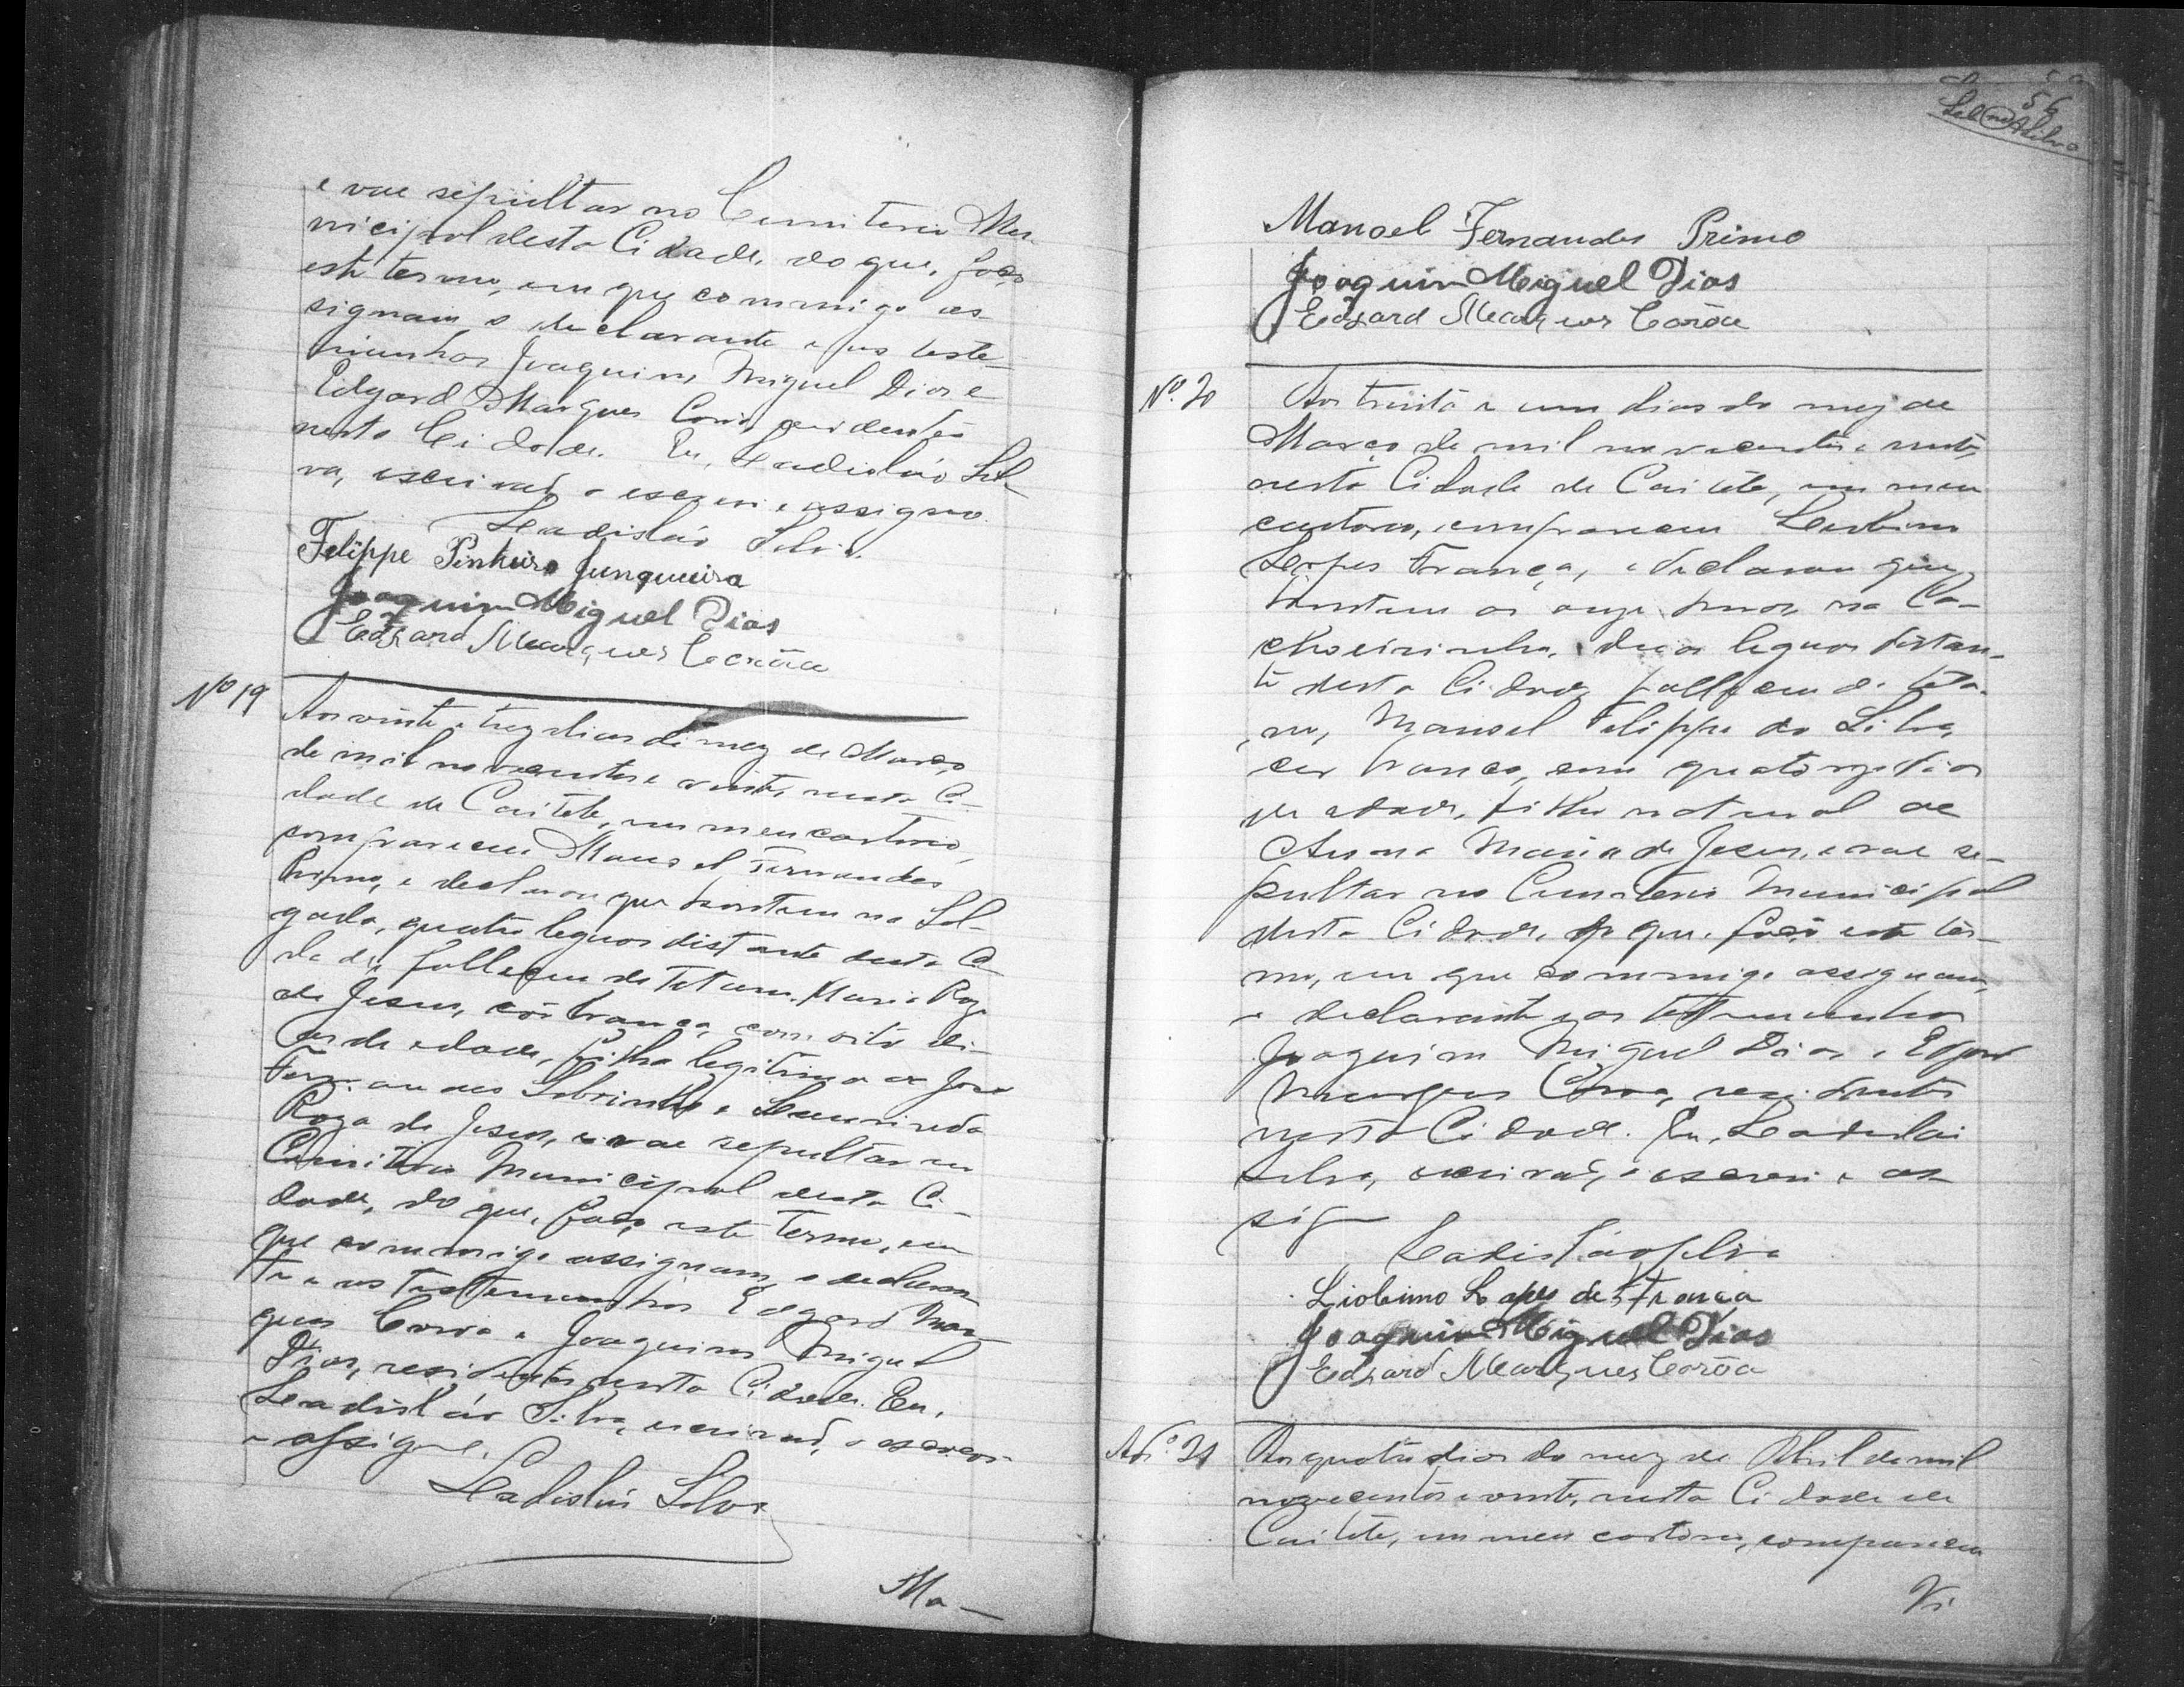 e vae sepultar no Cemiterio Mu-
nicipal desta Cidade, do que, faço
este termo, em que commigo as-
signam, o declarante e as teste-
munhas Joaquim Miguel Dias e
Edgard Marques Corôa, residentes
nesta Cidade. Eu, Leadisláo Sil-
va, escrivaõ o escrevi e assigno.
Leadisláo Silva.
Felippe Pinheiro Junqueira
Joaquim Miguel Dias
Edgard Marques Corôa
Nº 19
Aos vinte e trez dias do mez de Março,
de mil novecentos e vinte, nesta Ci-
dade de Caiteté, em meu cartorio,
compareceu Manoel Fernandes
Primo, e declarou que hontem na Sal-
gada, quatro leguas distante desta Ci-
dade, falleceu de tetano, Maria Roza
de Jesus, côr branca, com oito di-
as de edade, filha legitima de José
Fernandes Sobrinho e
Roza de Jesus, e vae sepultar no
Cemiterio Municipal desta Ci-
dade, do que, faço este termo, em
que commigo assignam, o declaran-
te e as testemunhas Edgard Mar-
ques Corôa e Joaquim Miguel
Dias, residentes nesta Cidade. Eu,
Leadisláo Silva, escrivaõ, o escrevi
e assigno.
Leadisláo Silva
Ma-
56
Manoel Fernandes Primo
Joaquim Miguel Dias
Edgard Marques Corôa
Nº. 20
Aos trinta e um dias do mez de
Março de mil novecentos e vinte,
nesta Cidade de Caiteté, em meu
cartorio, compareceu
Lopes França, e declarou que
hontem as onze horas na Ca-
choeirinha, leguas distan-
te desta Cidade, falleceu de teta-
no, Manoel Felippe da Silva,
côr branca, com quatorze dias
de edade, filho natural de
Anna Maria de Jesus, e vae se-
pultar no Cemiterio Municipal
desta Cidade, do que, faço este ter-
mo, em que commigo assignam,
o declarante e as testemunhas
Joaquim Miguel Dias e Edgard
Marques Corôa, residentes
nesta Cidade. Eu, Leadisláo
Silva, escrivaõ, o escrevi e as-
signo
Leadisláo Silva
Liobino Lopes de França
Joaquim Miguel Dias
Edgard Marques Corôa
Nº. 21
Aos quatro dias do mez de Abril de mil
novecentos e vinte, nesta Cidade de
Caiteté, em meu cartorio, compareceu
Vi